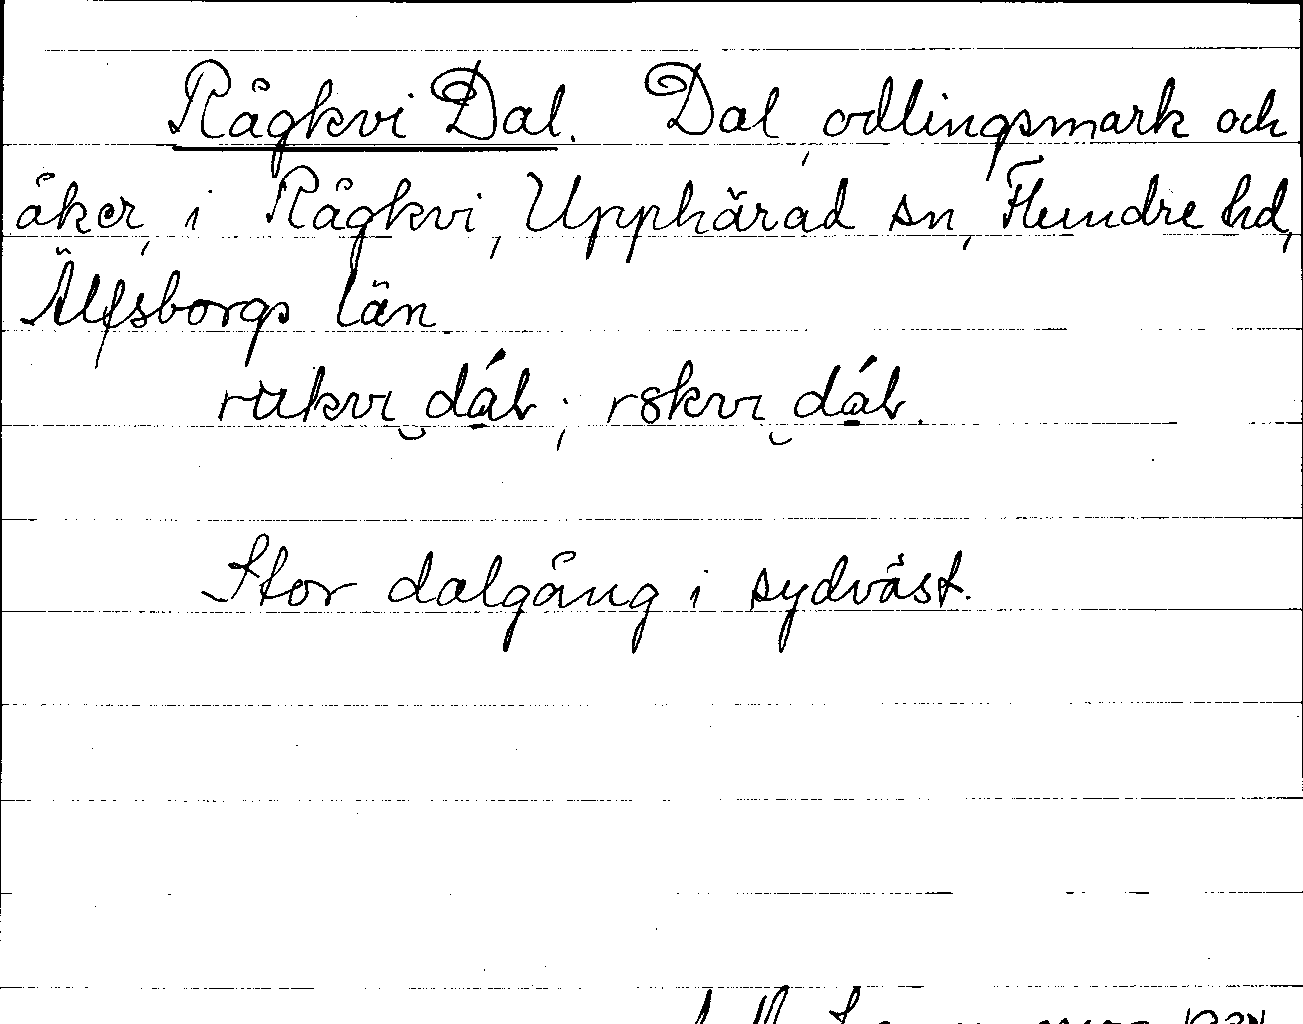 Rågkvi Dal. Dal, odlingsmark och
åker, i Rågkvi, Upphärad sn, Flundre hd,
Älfsborgs län.
Stor dalgång i sydväst.